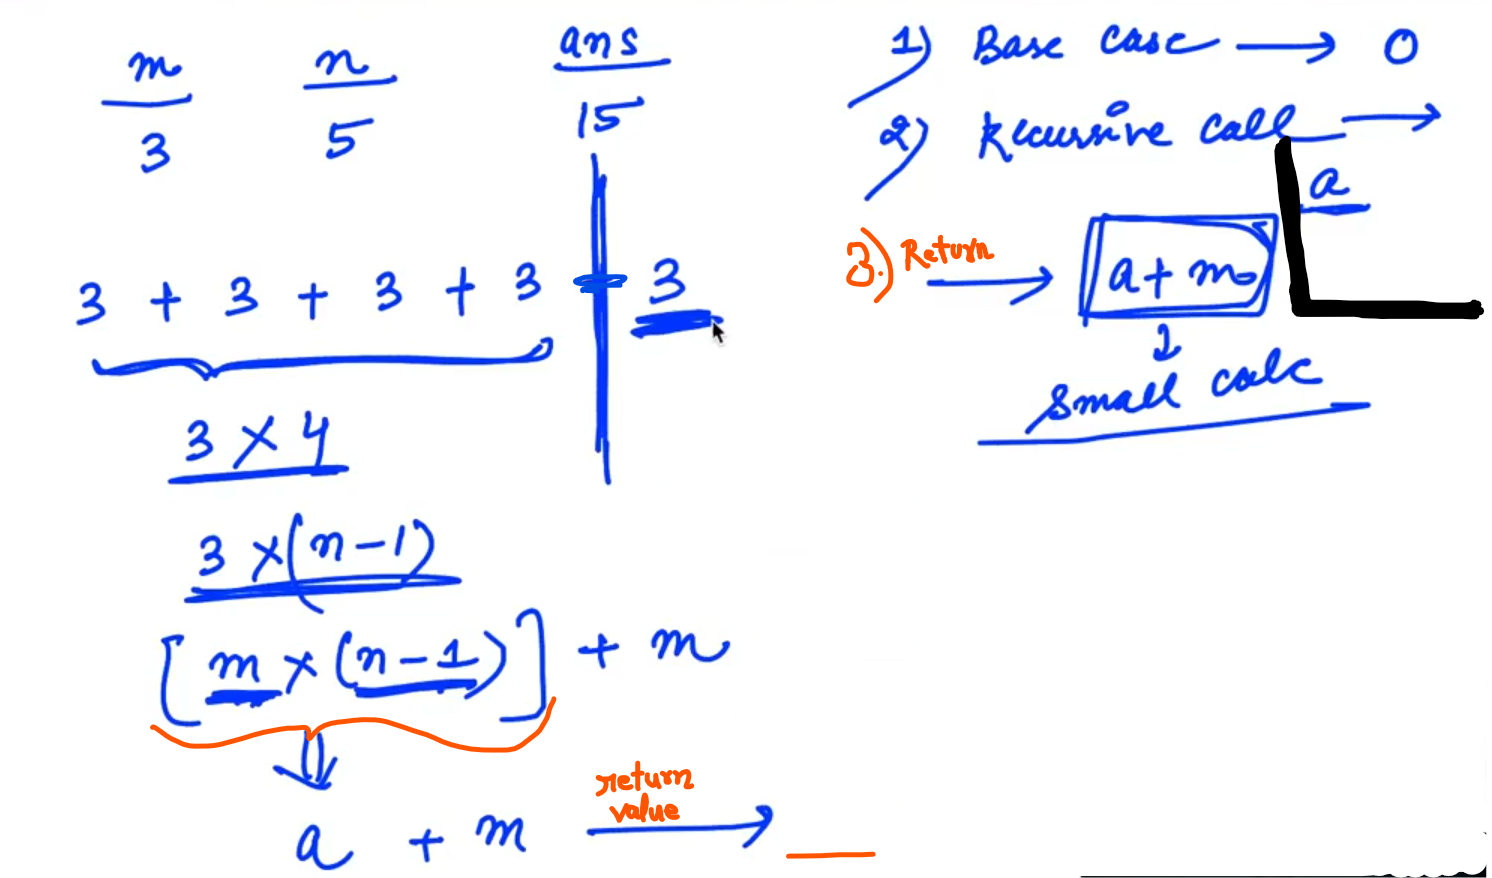 m n ans
3 5 15
3 + 3 + 3 + 3 + 3
3 × 4
3 × (n - 1)
[m × (n - 1)] + m
a + m return value →
1) Base case → 0
2) Recursive call →
a
3.) Return → a + m
small calc